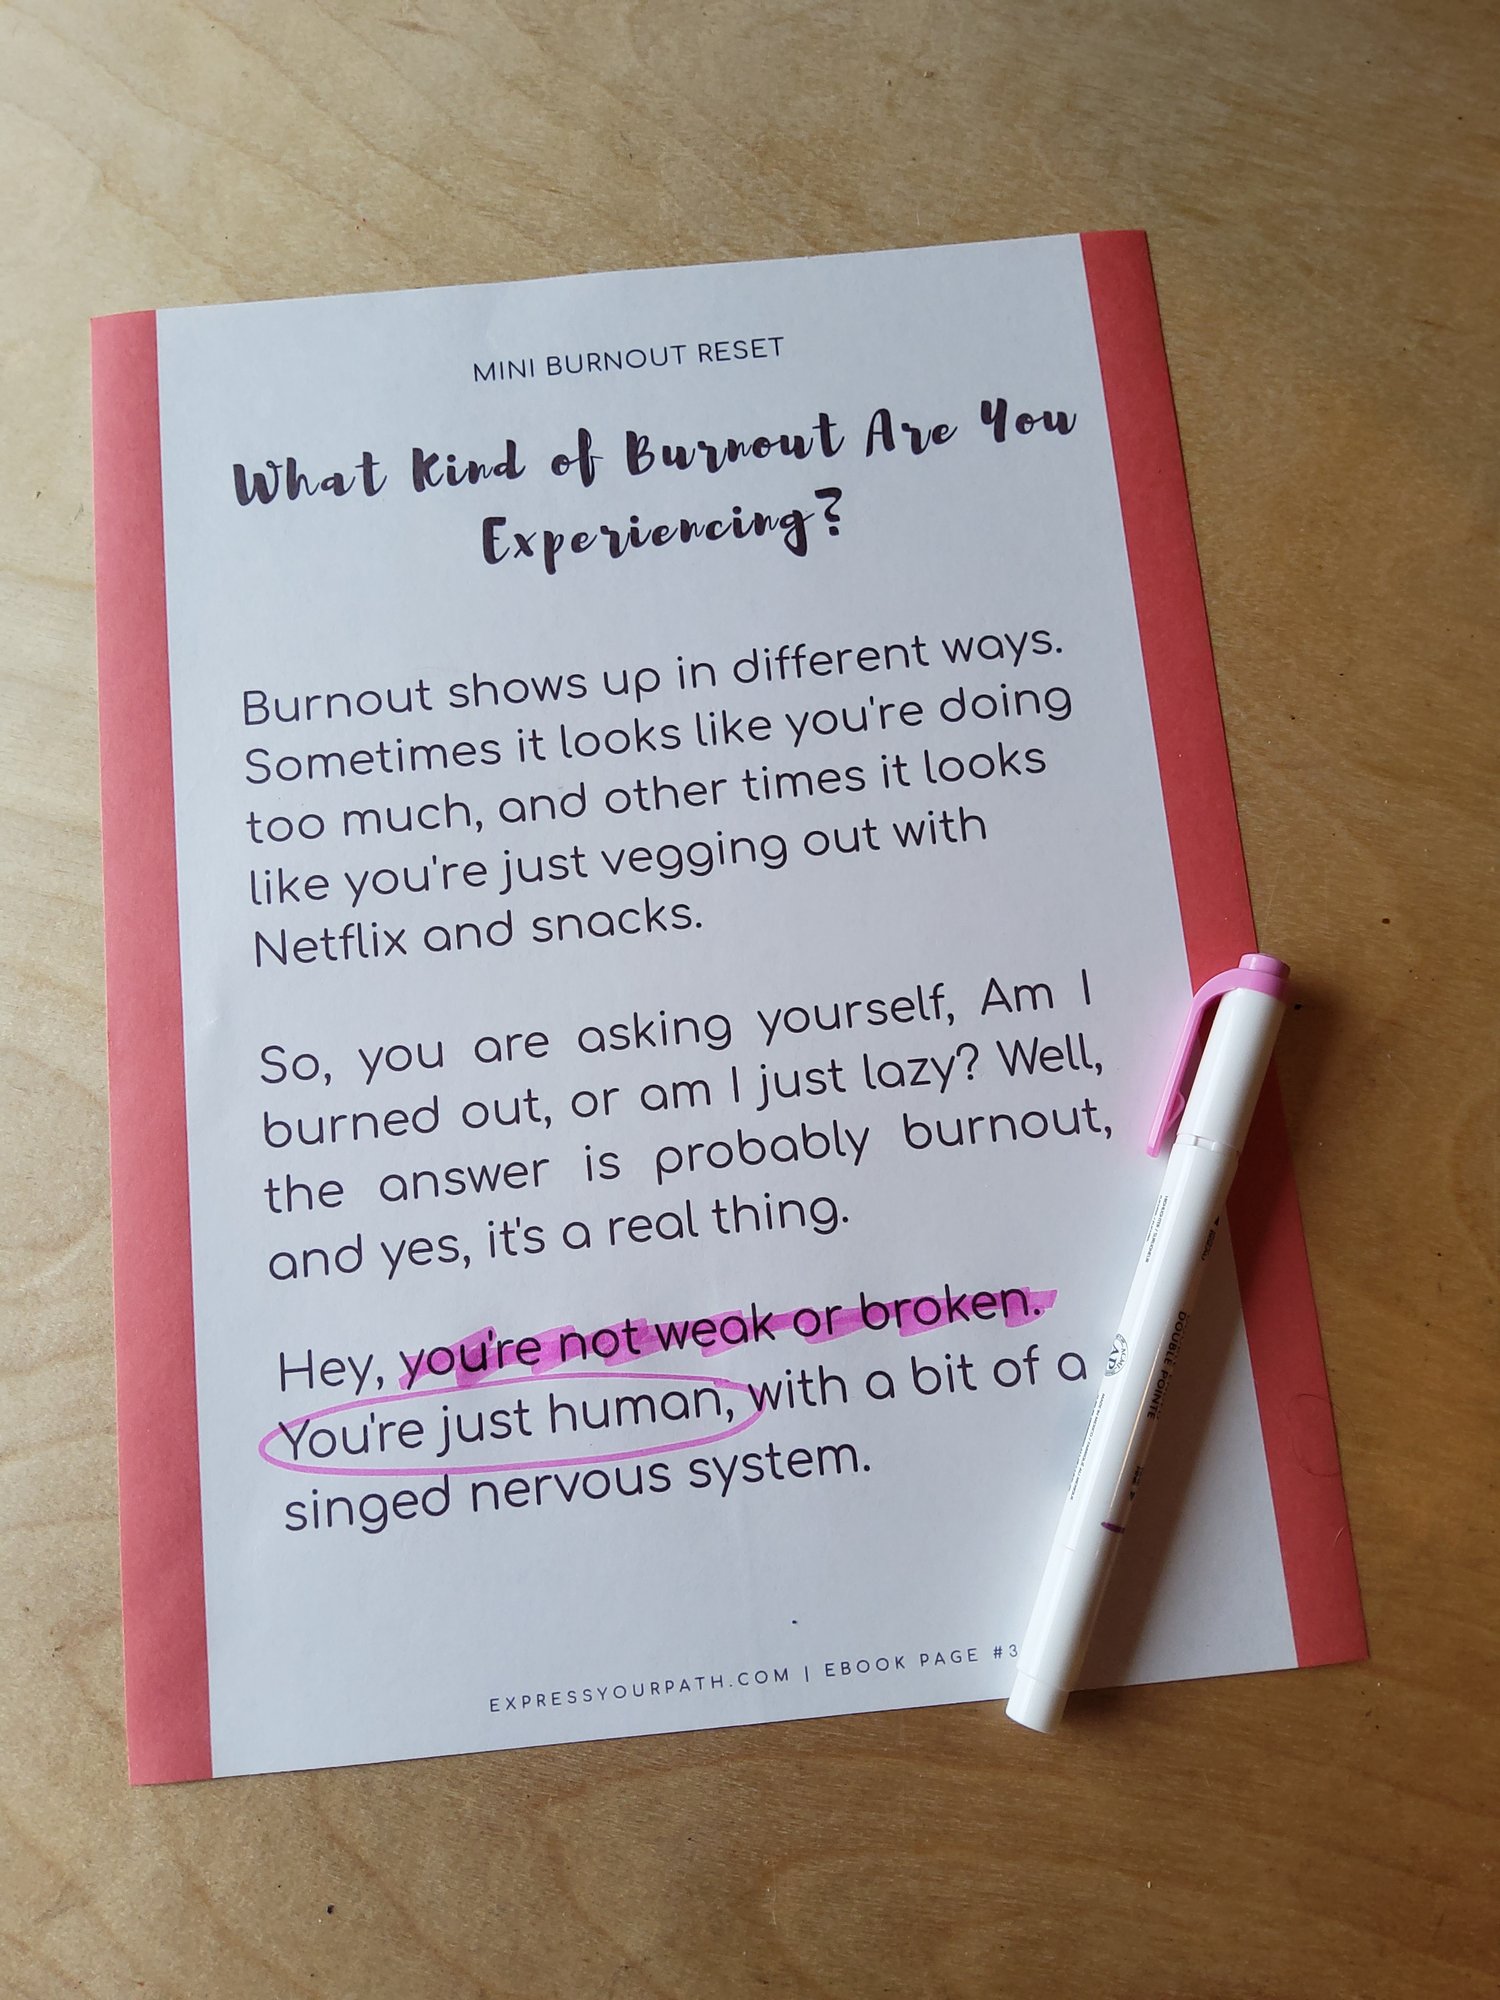 MINI BURNOUT RESET
What Kind of Burnout Are You
Experiencing?
Burnout shows up in different ways.
Sometimes it looks like you're doing
too much, and other times it looks
like you're just vegging out with
Netflix and snacks.
So, you are asking yourself, Am I
burned out, or am I just lazy? Well,
the answer is probably burnout,
and yes, it's a real thing.
Hey, you're not weak or broken.
You're just human, with a bit of a
singed nervous system.
EXPRESSYOURPATH.COM | EBOOK PAGE #3
DOUBLE POINTE